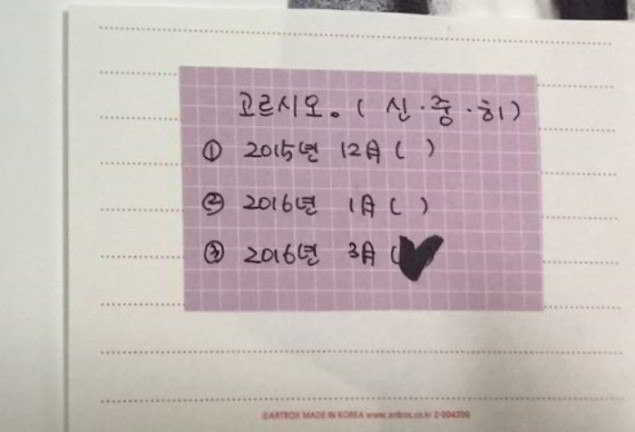 고르시오. ( 신·중·히)
① 2015년 12月 ( )
② 2016년 1月 ( )
③ 2016년 3月 (
©ARTBOX MADE IN KOREA www.artbox.co.kr